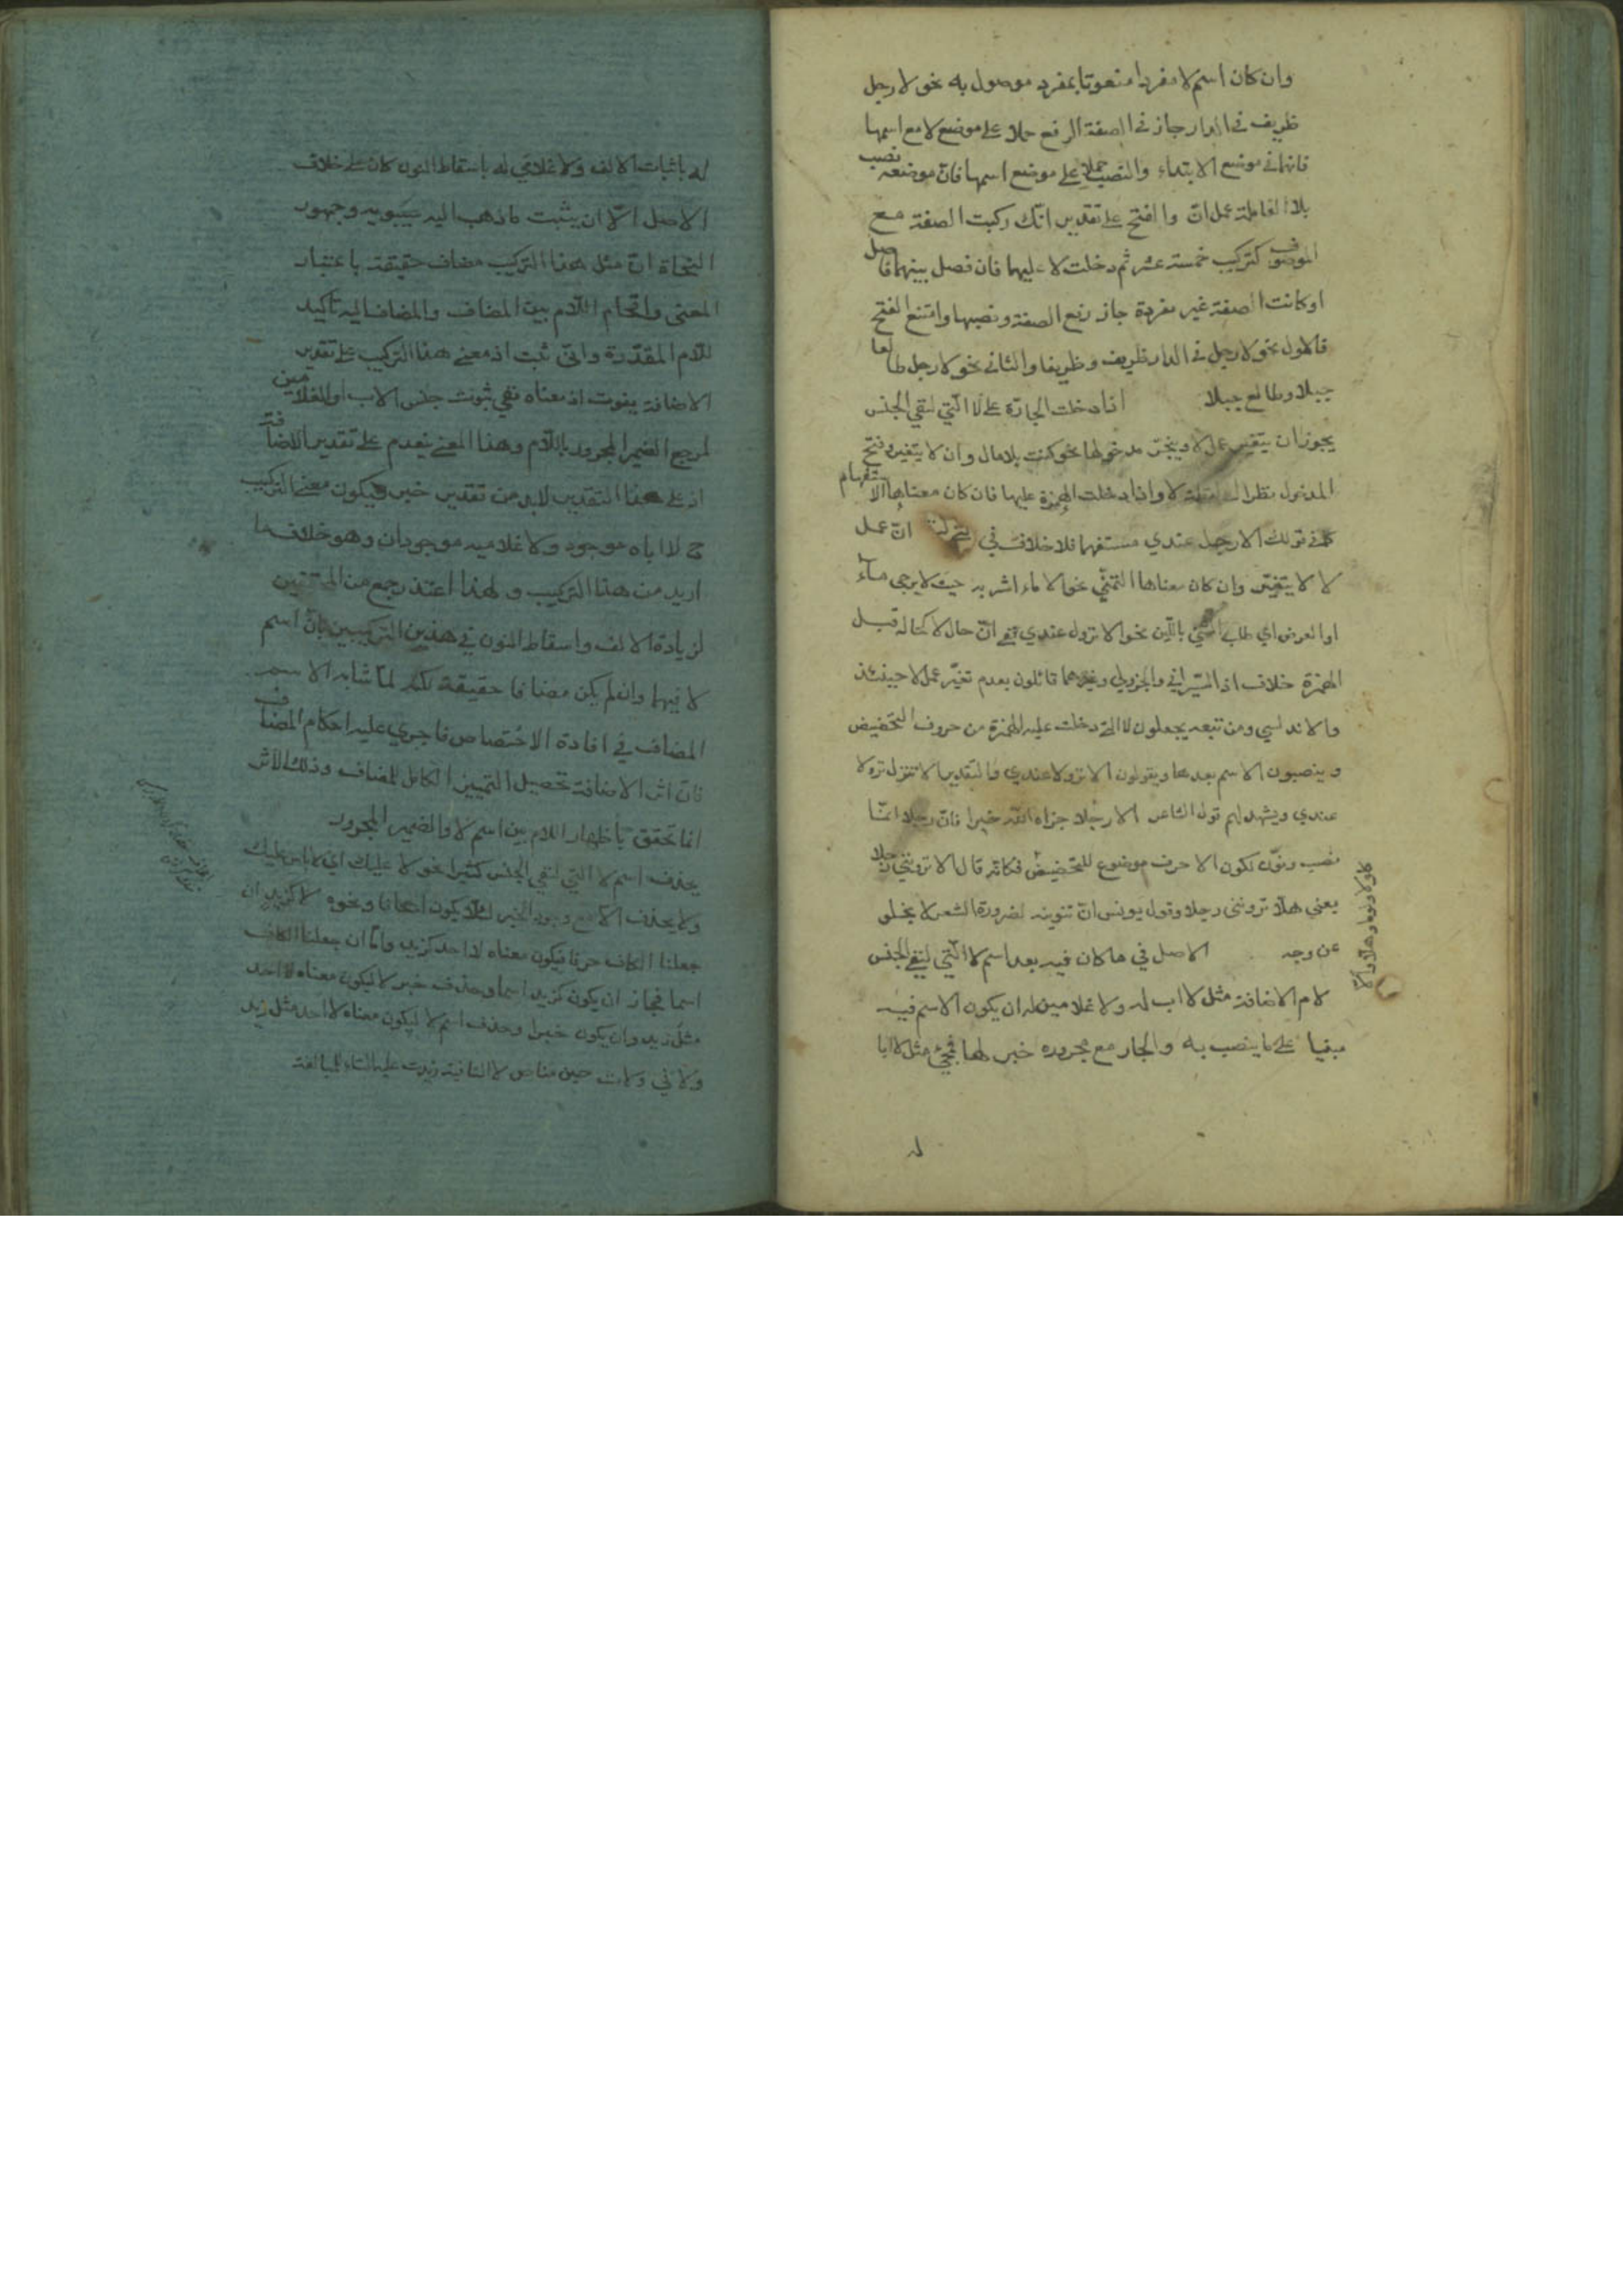 وان كان اسم لا مفردا منعوتا بمفرد موصول به نحو لا رجل
ظريف في الدار جاز في الصفة الرفع حملا على موضع لا مع اسمها
فانها في موضع الابتداء والنصب حملا على موضع اسمها فانّ موضعه نصب
بلا العاملة عمل انّ والفتح على تقدير انّك ركبت الصفة مع
الموصوف كتركيب خمسة عشر ثم دخلت لا عليهما فان فصل بينهما فاصل
او كانت الصفة غير مفردة جاز رفع الصفة ونصبها وامتنع الفتح
فالاول نحو لا رجل في الدار ظريف وظريفا والثاني نحو لا رجل طالعا
جبلا وطالع جبلا اذا دخلت الجارّة على لا الّتي لنفي الجنس
يجوز ان يتغير عمل لا وينجرّ مدخولها نحو كنت بلا مال وان لا يتغير وفتح
المدخول نظرا لا واذا دخلت الهمزة عليها فان كان معناها الاستفهام
كما في قولك الا رجل عندي مستفهما فلا خلاف في انّ عمل
لا لا يتغيّر وان كان معناها التمنّي نحو الا ماء اشربه حيث لا يرجى ماء
او العرض اي طلب باللّين نحو الا نزول عندي ففي انّ حال لا كحاله قبل
الهمزة خلاف اذ السّيرافي والجزولي وغيرهما قائلون بعدم تغيّر عمل لا حينئذ
والاندلسي ومن تبعه يجعلون لا التي دخلت عليه الهمزة من حروف التحضيض
وينصبون الاسم بعدها ويقولون الا نزولا عندي والتقدير الا تنزل نزولا
عندي ويشهد لهم قول الشاعر الا رجلا جزاه اللّه خيرا فانّ رجلا انّما
نصب ونوّن لكون الا حرف موضوع للتحضيض فكانه قال الا ترونني رجلا
يعني هلّا ترونني رجلا وقول يونس انّ تنوينه لضرورة الشعر لا يخلو
عن وجه الاصل في ما كان فيه بعد اسم لا الّتي لنفي الجنس
لام الاضافة مثل لا اب له ولا غلامين له ان يكون الاسم فيه
مبنيا على ما ينصب به والجار مع مجروره خبر لها فمجيء مثل لا ابا
له
له باثبات الالف ولا غلامي له باسقاط النون كان على خلاف
الاصل الّا ان يثبت ما ذهب اليه سيبويه وجمهور
النحاة انّ مثل هذا التركيب مضاف حقيقة باعتبار
المعنى واقحام اللّام بين المضاف والمضاف اليه تاكيد
للّام المقدّرة وانّى ثبت اذ معنى هذا التركيب على تقدير
الاضافة يفوت اذ معناه نفي ثبوت جنس الاب او الغلامين
لمرجع الضمير المجرور باللّام وهذا المعنى ينعدم على تقدير الاضافة
اذ على هذا التقدير لا بد من تقدير خبر فيكون معنى التركيب
ح لا اباه موجود ولا غلاميه موجودان وهو خلاف ما
اريد من هذا التركيب ولهذا اعتذر جمع من المحققين
لزيادة الالف واسقاط النون في هذين التركيبين بانّ اسم
لا فيهما وان لم يكن مضافا حقيقة لكنه لمّا شابه الاسم
المضاف في افادة الاختصاص فاجري عليه احكام المضاف
فانّ اثر الاضافة تحصيل التمييز الكامل للمضاف وذلك الاثر
انما تحقق باظهار اللام بين اسم لا والضمير المجرور
يحذف اسم لا التي لنفي الجنس كثيرا نحو لا عليك اي لا باس عليك
ولا يحذف الّا مع وجود الخبر لئلّا يكون اجحافا ونحوه لا كزيد ان
جعلنا الكاف حرفا فيكون معناه لا احد كزيد وامّا ان جعلنا الكاف
اسما فجاز ان يكون كزيد اسما وحذف خبر لا ليكون معناه لا احد
مثل زيد وان يكون خبرا وحذف اسم لا ليكون معناه لا احد مثل زيد
ولا في ولات حين مناص لا النافية زيدت عليه التاء للمبالغة